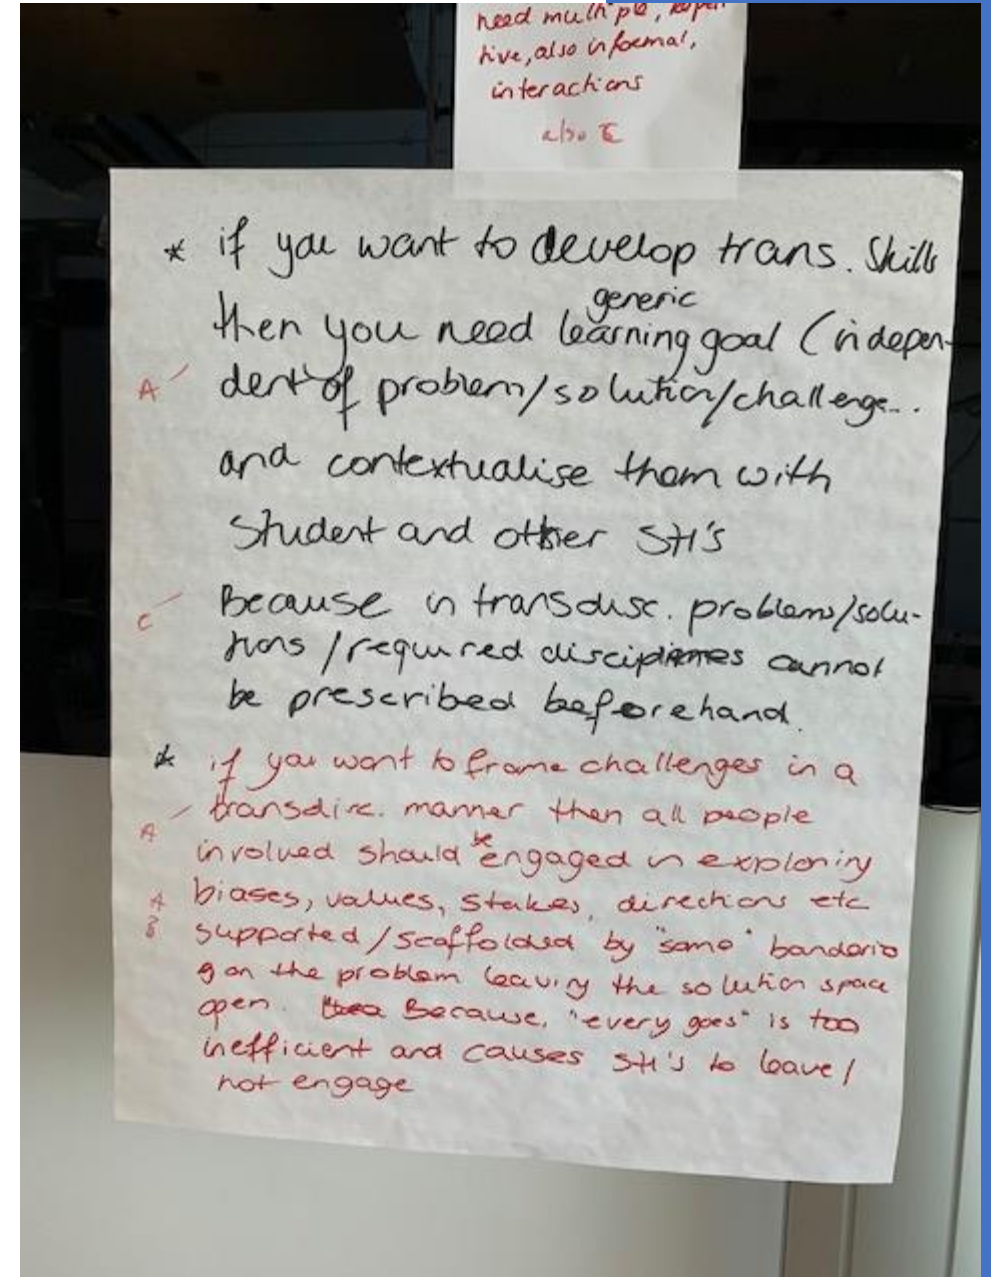 need multiple, repeti
tive, also informal,
interactions
also C
* if you want to develop trans. skills
generic
then you need learning goal (indepen-
A dent of problem/solution/challenge...
and contextualise them with
student and other SH's
C Because in transdisc. problems/solu-
tions / required disciplines cannot
be prescribed beforehand.
* if you want to frame challenges in a
transdisc. manner then all people
A
be
involved should engaged in exploring
A biases, values, stakes, directions etc
B supported/scaffolded by "some" bandario
g on the problem leaving the solution space
open. Because, "every goes" is too
inefficient and causes SH's to leave/
not engage